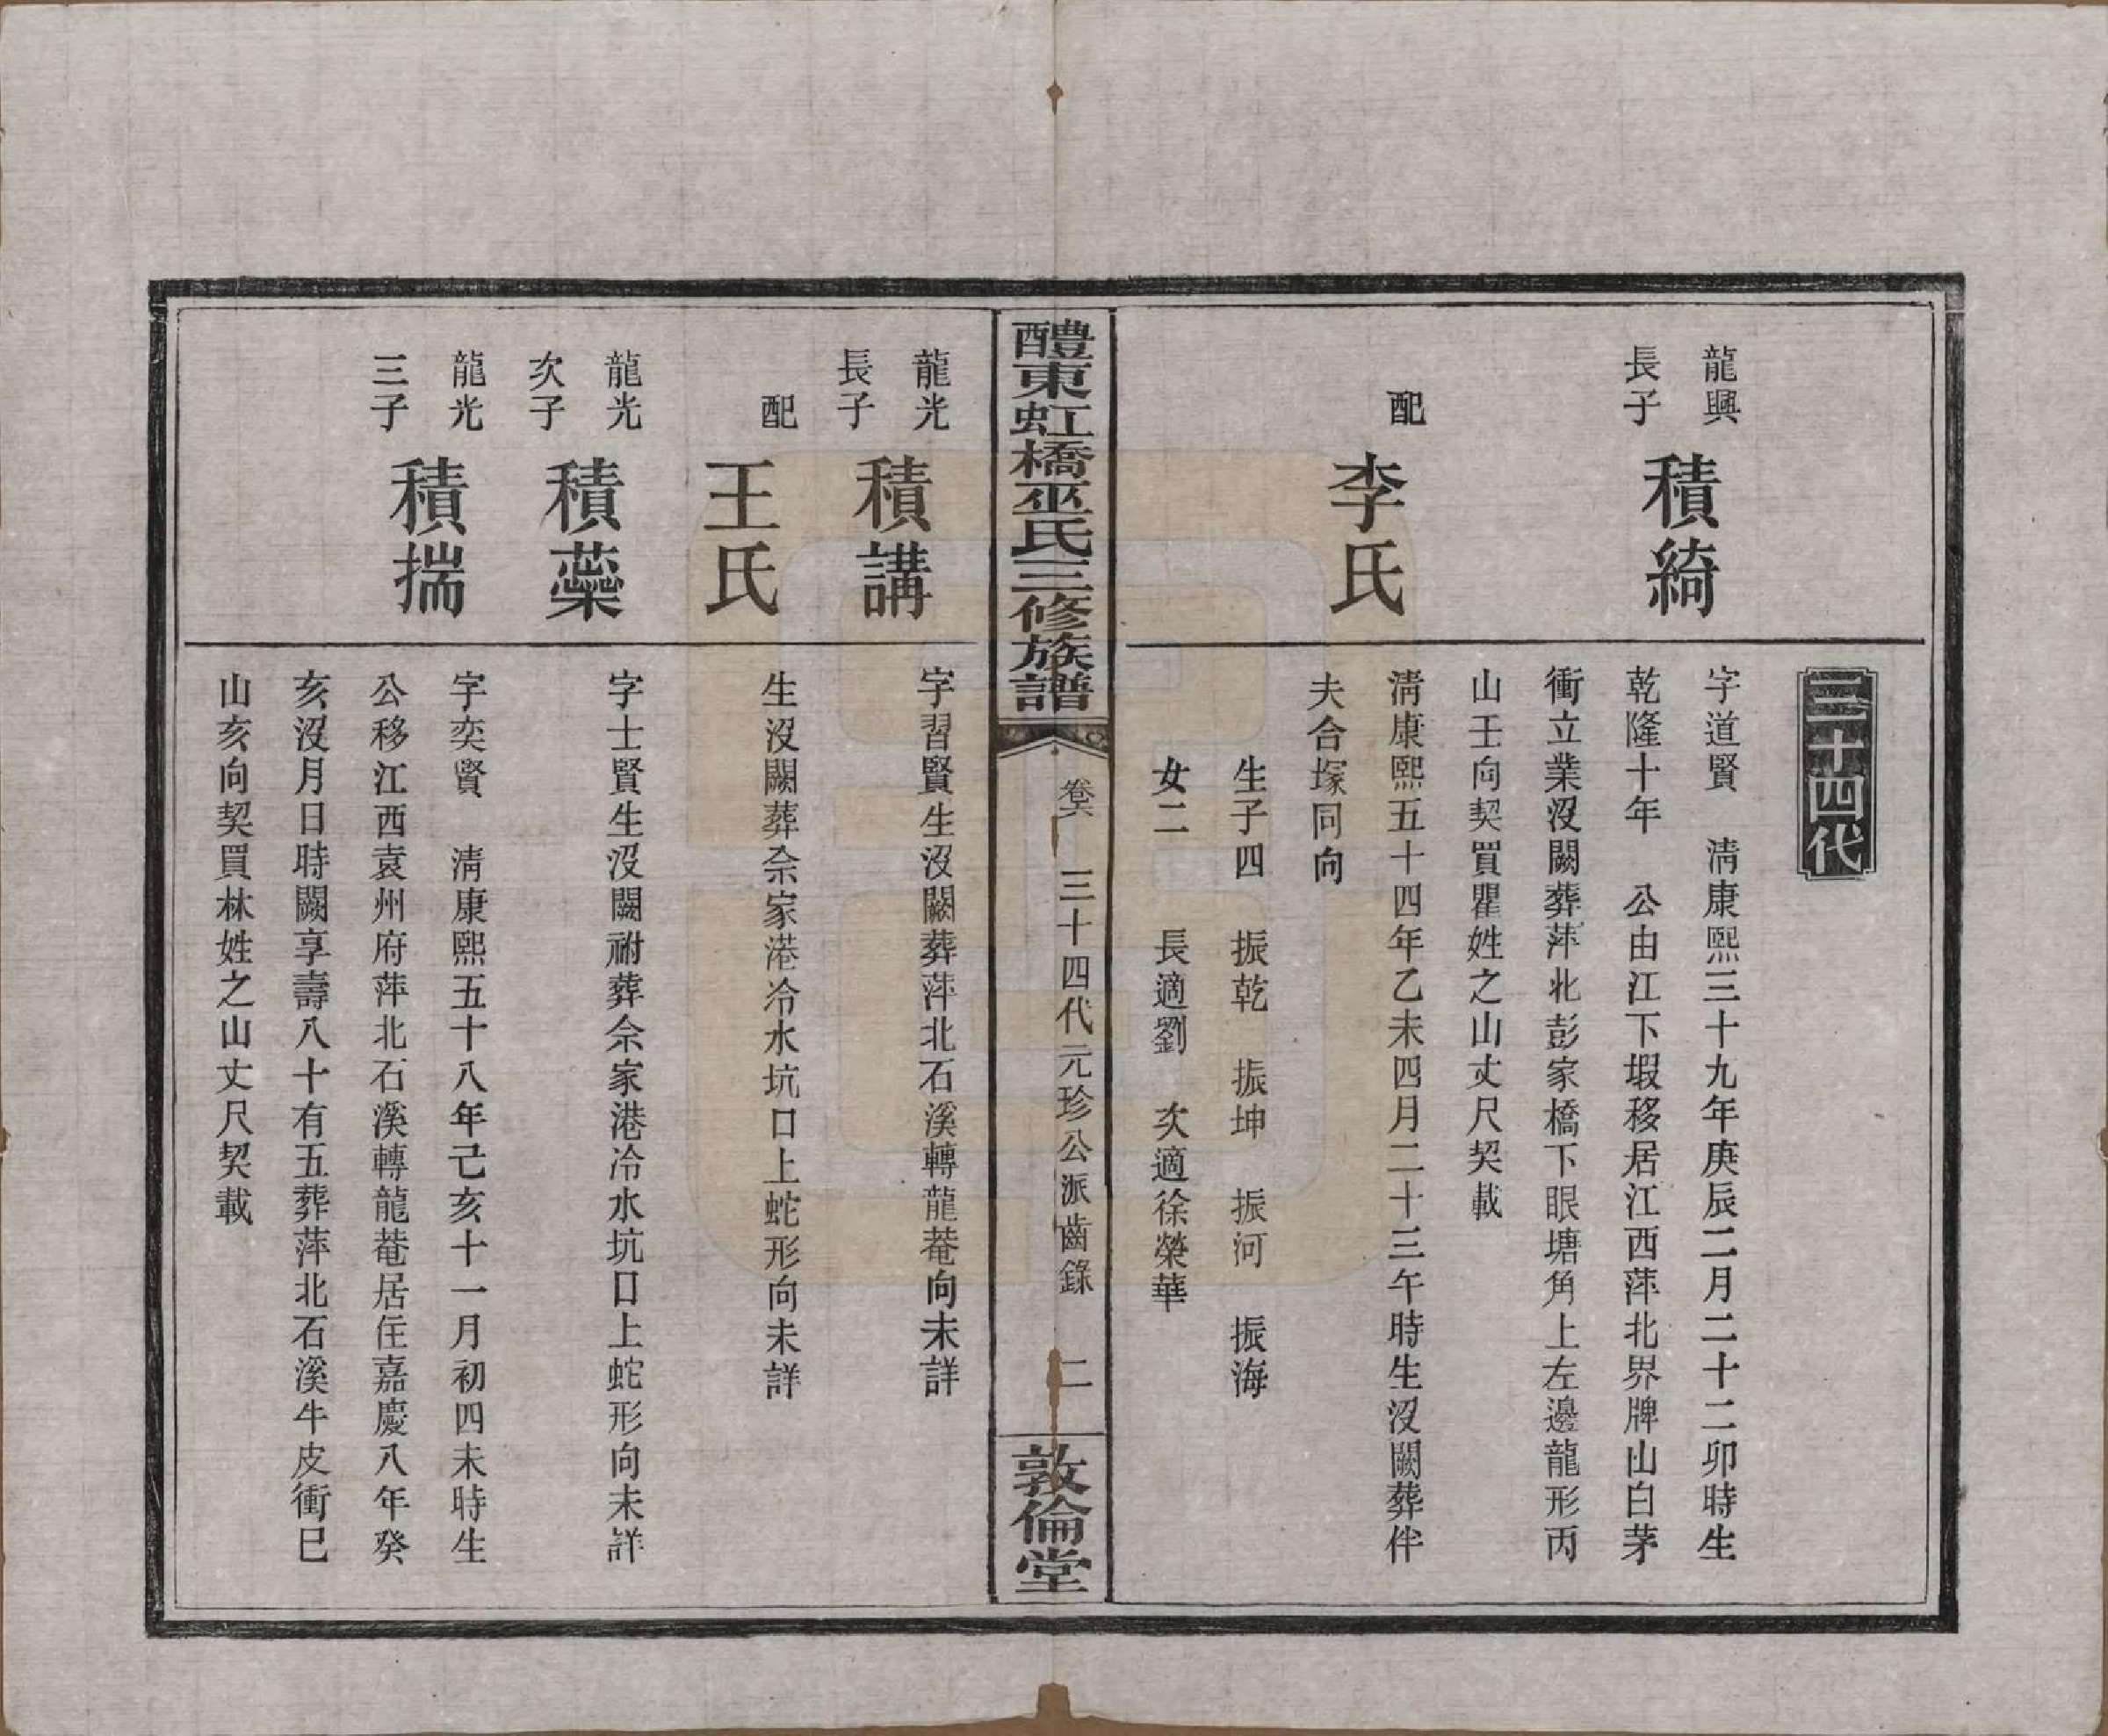 三十四代
龍興
長子
積綺
字道賢 淸康熙三十九年庚辰二月二十二卯時生
乾隆十年 公由江下塅移居江西萍北界牌山白茅
衝立業沒闕葬萍北彭家橋下眼塘角上左邊龍形丙
山壬向契買瞿姓之山丈尺契載
配
李氏
淸康熙五十四年乙未四月二十三午時生沒闕葬伴
夫合塚同向
生子四 振乾 振坤 振河 振海
女二 長適劉 次適徐榮華
醴東虹橋巫氏三修族譜
卷六
三十四代元珍公派齒錄 二
敦倫堂
龍光
長子
積講
字習賢生沒闕葬萍北石溪轉龍菴向未詳
配
王氏
生沒闕葬佘家港冷水坑口上蛇形向未詳
龍光
次子
積蘂
字士賢生沒闕祔葬佘家港冷水坑口上蛇形向未詳
龍光
三子
積揣
字奕賢 淸康熙五十八年己亥十一月初四未時生
公移江西袁州府萍北石溪轉龍菴居住嘉慶八年癸
亥沒月日時闕享壽八十有五葬萍北石溪牛皮衝巳
山亥向契買林姓之山丈尺契載